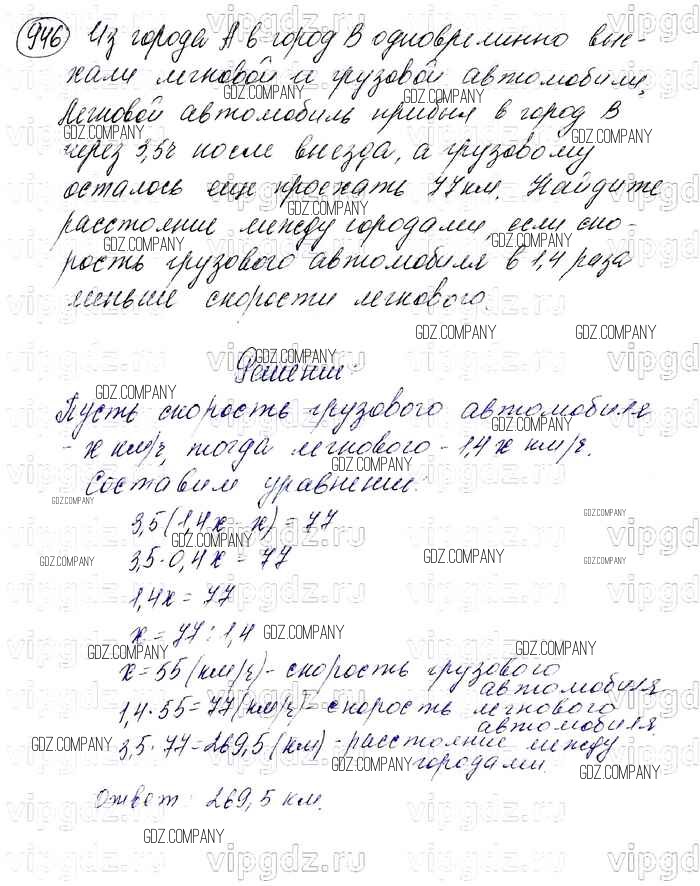 946 Из города А в город В одновременно вые-
хали легковой и грузовой автомобили.
Легковой автомобиль прибыл в город В
через 3,5ч после выезда, а грузовому
осталось еще проехать 77 км. Найдите
расстояние между городами, если ско-
рость грузового автомобиля в 1,4 раза
меньше скорости легкового.
Решение:
Пусть скорость грузового автомобиля
- х км/ч, тогда легкового - 1,4х км/ч.
Составим уравнение:
3,5(1,4х - х) = 77
3,5·0,4х = 77
1,4х = 77
х = 77 : 1,4
х = 55 (км/ч) - скорость грузового
автомобиля
1,4·55 = 77 (км/ч) - скорость легкового
автомобиля
3,5·77 = 269,5 (км) - расстояние между
городами.
Ответ: 269,5 км.